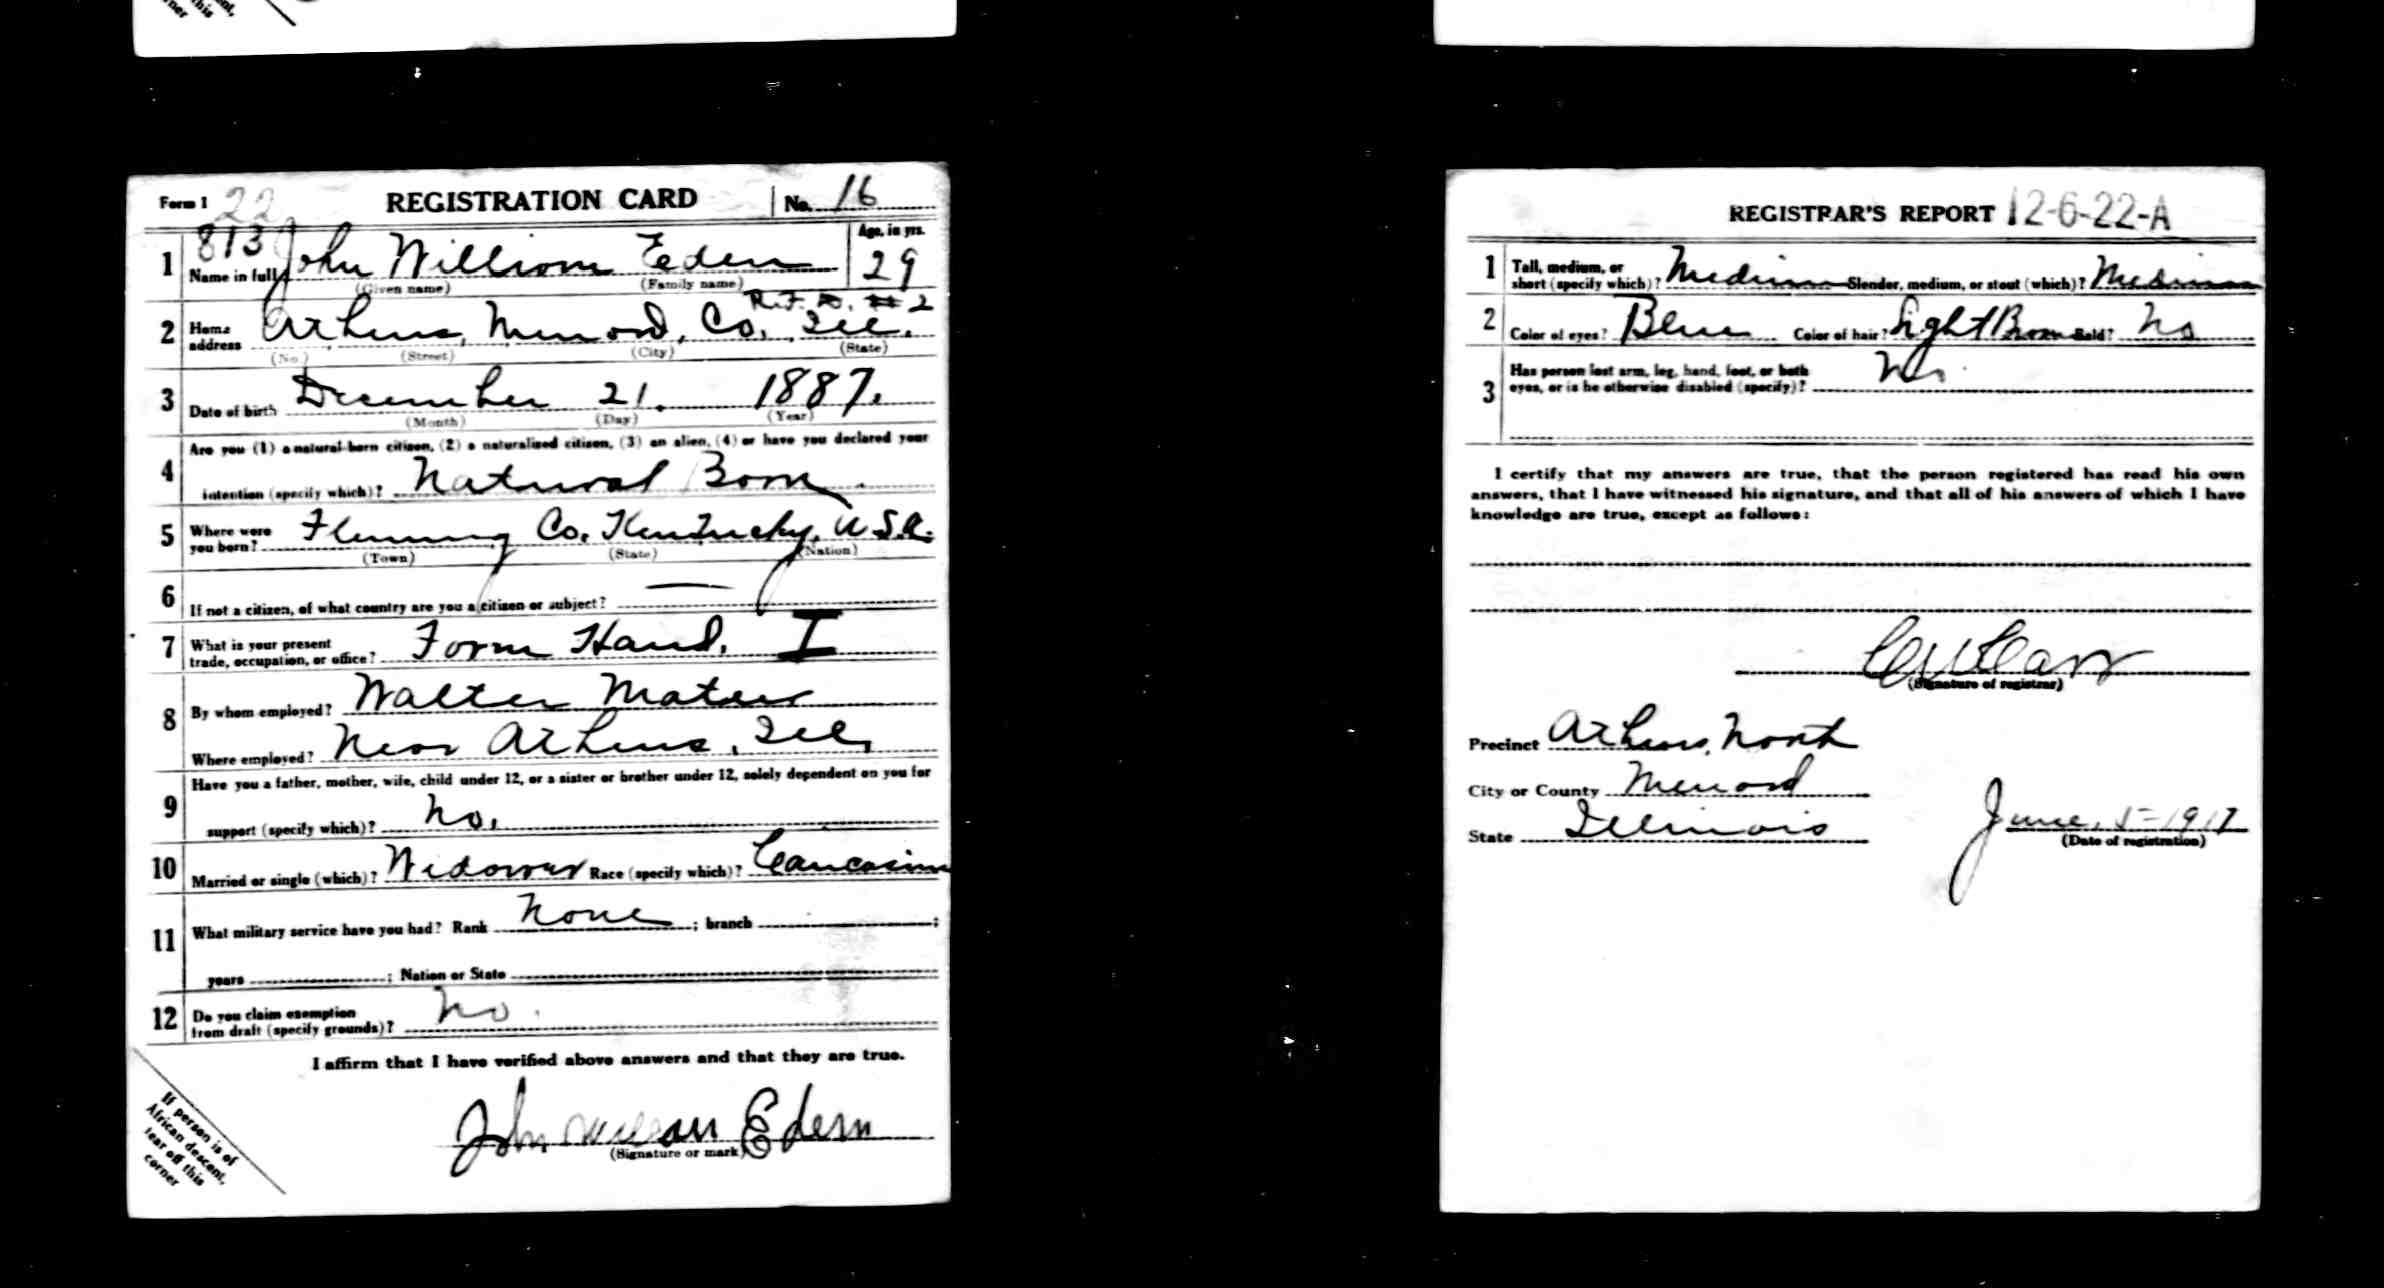 corner
this
ent,
Form 1 22 REGISTRATION CARD No. 16
813 Age, in yrs.
1 Name in full John William Eden 29
(Given name) (Family name)
R.F.D. #2
2 Home address Athens, Menard, Co, Ill.
(No.) (Street) (City) (State)
3 Date of birth December 21. 1887.
(Month) (Day) (Year)
Are you (1) a natural-born citizen, (2) a naturalized citizen, (3) an alien, (4) or have you declared your
4 intention (specify which)? Natural Born
5 Where were you born? Fleming Co. Kentucky, U.S.A.
(Town) (State) (Nation)
6 If not a citizen, of what country are you a citizen or subject? —
7 What is your present
trade, occupation, or office? Farm Hand. I
8 By whom employed? Walter
Where employed? Near Athens, Ill,
Have you a father, mother, wife, child under 12, or a sister or brother under 12, solely dependent on you for
9 support (specify which)? No.
10 Married or single (which)? Widower Race (specify which)? Caucasian
11 What military service have you had? Rank None ; branch ;
years ; Nation or State
12 Do you claim exemption
from draft (specify grounds)? No.
I affirm that I have verified above answers and that they are true.
John William Eden
(Signature or mark)
If person is of
African descent,
tear off this
corner
REGISTRAR'S REPORT 12-6-22-A
1 Tall, medium, or
short (specify which)? Medium Slender, medium, or stout (which)? Medium
2 Color of eyes? Blue Color of hair? Light Brown Bald? No
3 Has person lost arm, leg, hand, foot, or both
eyes, or is he otherwise disabled (specify)? No.
I certify that my answers are true, that the person registered has read his own
answers, that I have witnessed his signature, and that all of his answers of which I have
knowledge are true, except as follows:
(Signature of registrar)
Precinct Athens, North
City or County Menard
State Illinois June, 5-1917
(Date of registration)